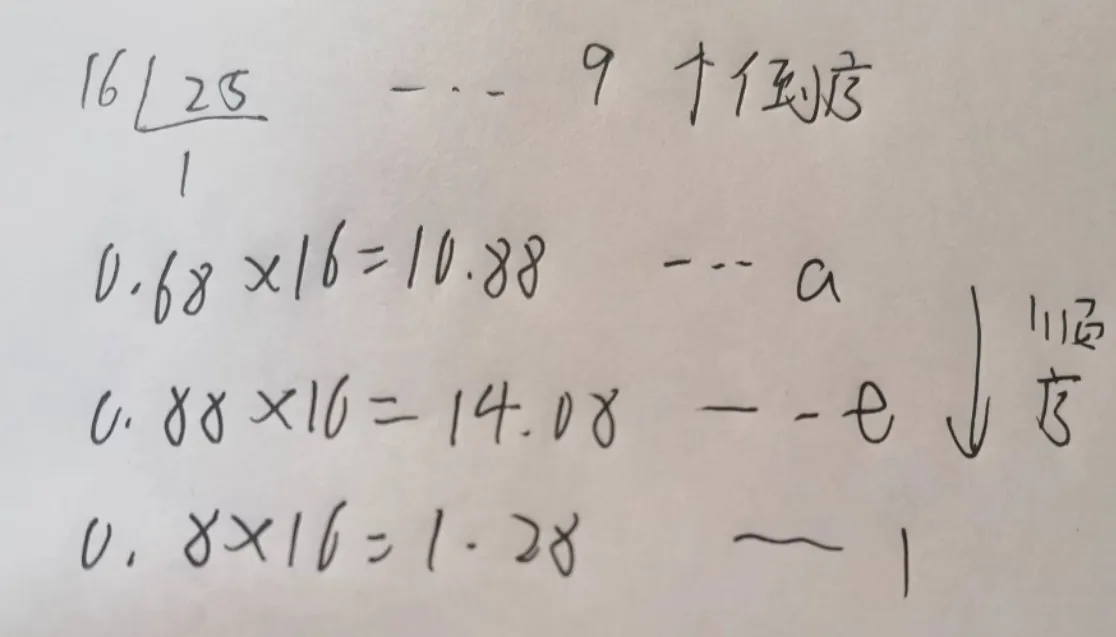 16 25 --- 9 ↑倒序
1
0.68×16=10.88 --- a
0.88×16=14.08 --- e ↓顺序
0.8×16=1.28 — 1